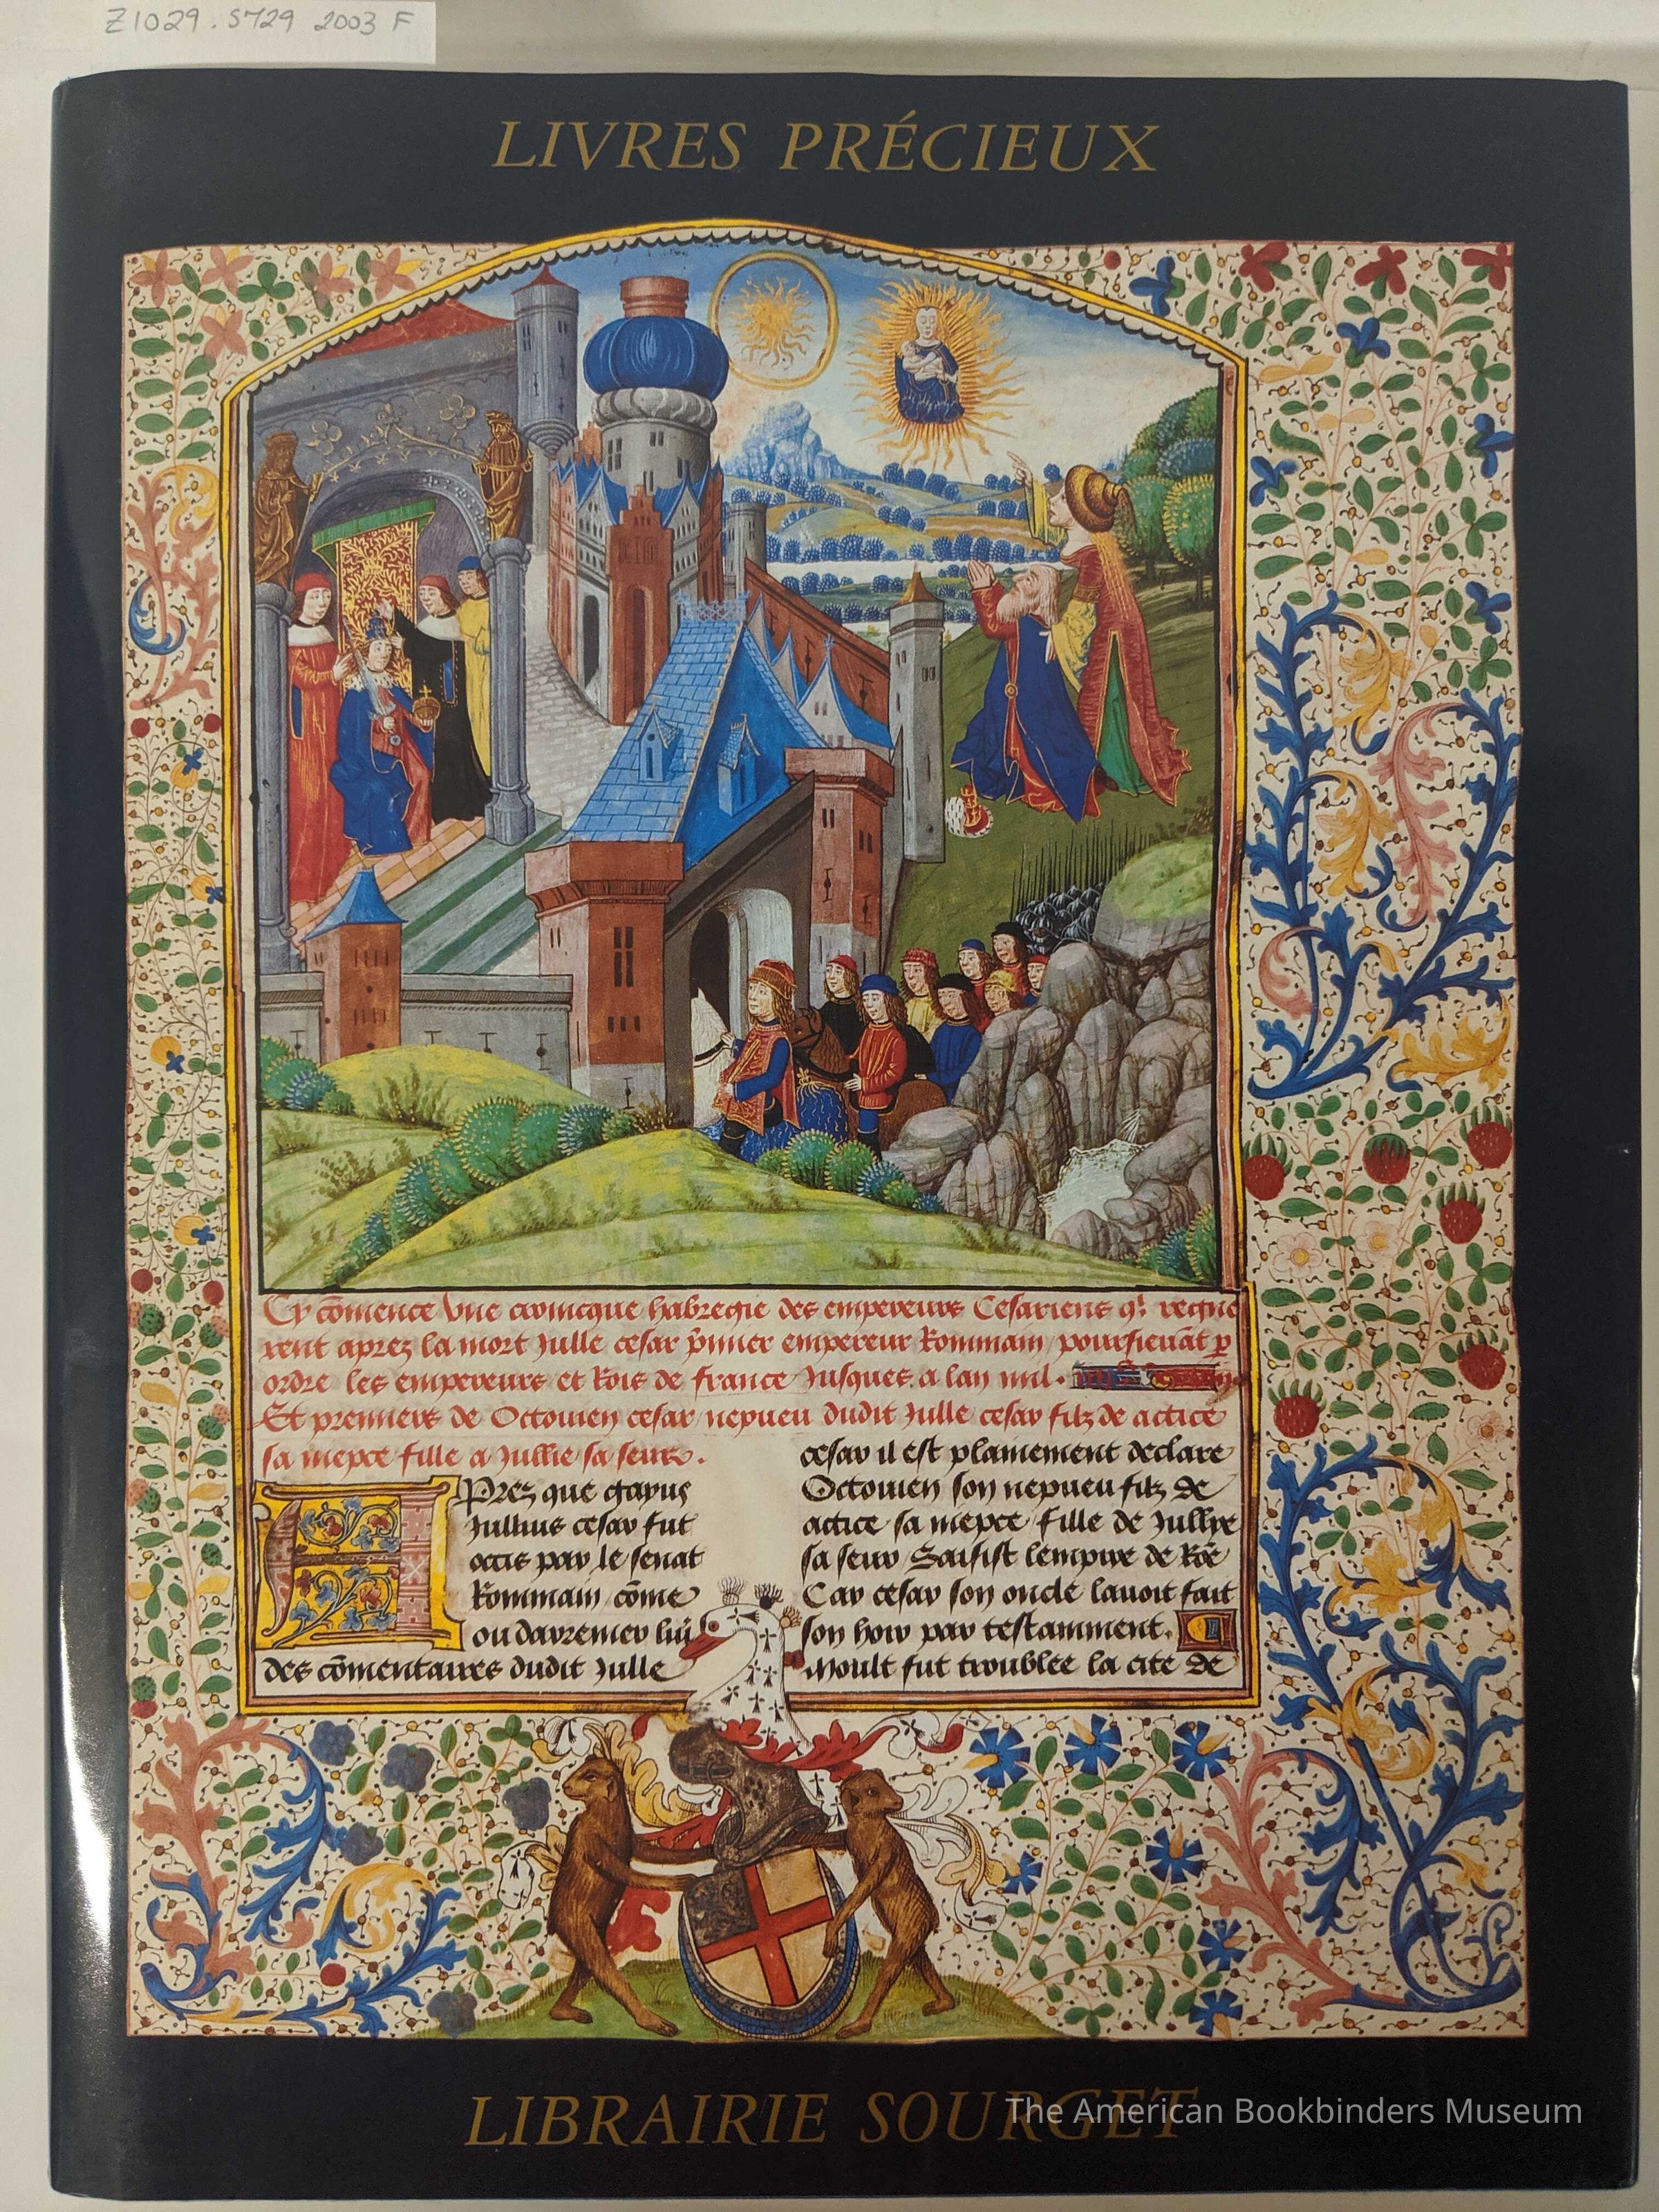 Z1029.S729 2003 F
LIVRES PRÉCIEUX
Cy cōmence vne cronicque habregie des empereurs Cesariens qͥ regne
rent aprez la mort Julle cesar p̄mier empereur Rommain poursieuāt p
ordre les empereurs et Rois de france Jusques a lan mil.
Et premiers de Octouien cesar nepueu dudit Julle cesar filz de actice
sa niepce fille a Jullie sa seur.
APrez que gayus
Jullius cesar fut
occis par le senat
Rommain cōme
ou darrenier liu
des cōmentaires dudit Julle
cesar il est plainement declare
Octouien son nepueu filz de
actice sa niepce fille de Jullye
sa seur Saisist lempire de Rōe
Car cesar son oncle lauoit fait
son hoir par testamment.
Moult fut troublee la cite de
LIBRAIRIE SOURGET
The American Bookbinders Museum